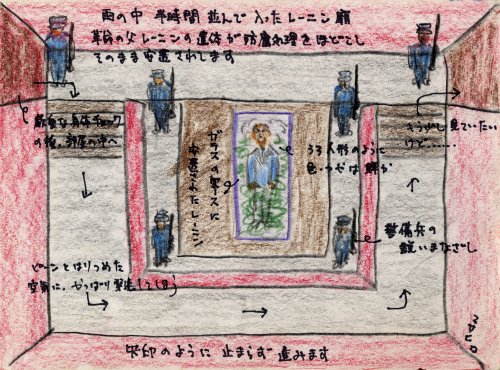 雨の中 半時間 並んで 入ったレーニン廟
革命の父レーニンの遺体が防腐処理をほどこし
そのまま安置されします
厳重な身体チェック
の後、部屋の中へ
ガラスの箱スに
安置されたレーニン
ろう人形のように
色・つやは鮮か
もう少し見ていたい
けど……
警備兵の
鋭いまなざし
ピーンとはりつめた
空気に、やっぱり緊張してしまう
矢印のように 止まらず 進みます